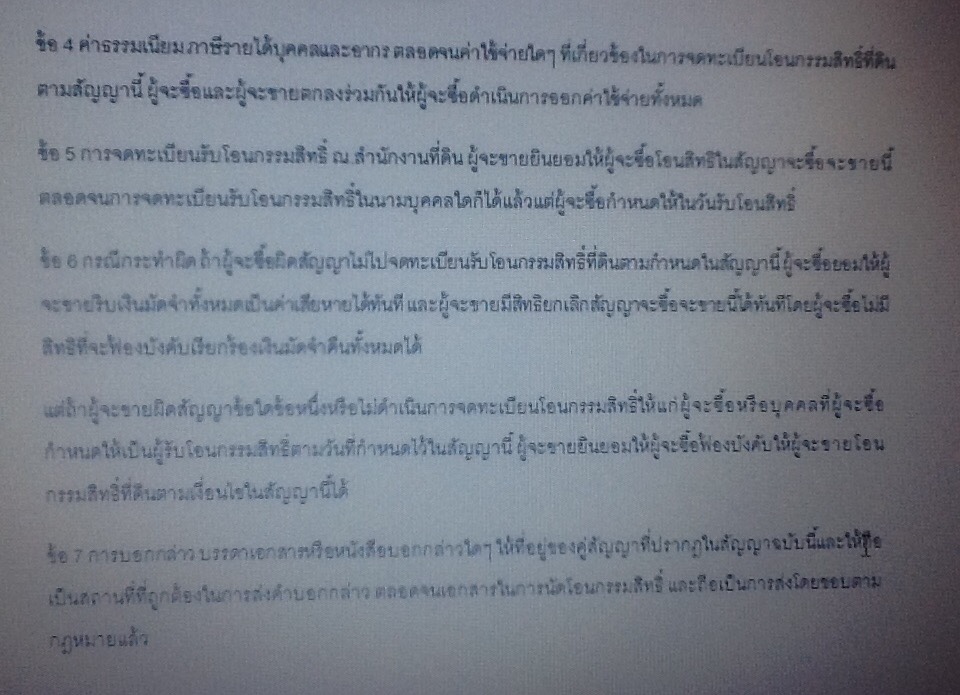 ข้อ 4 ค่าธรรมเนียม ภาษีรายได้บุคคลและอากร ตลอดจนค่าใช้จ่ายใดๆ ที่เกี่ยวข้องในการจดทะเบียนโอนกรรมสิทธิ์ที่ดิน
ตามสัญญานี้ ผู้จะซื้อและผู้จะขายตกลงร่วมกันให้ผู้จะซื้อดำเนินการออกค่าใช้จ่ายทั้งหมด
ข้อ 5 การจดทะเบียนรับโอนกรรมสิทธิ์ ณ.สำนักงานที่ดิน ผู้จะขายยินยอมให้ผู้จะซื้อโอนสิทธิในสัญญาจะซื้อจะขายนี้
ตลอดจนการจดทะเบียนรับโอนกรรมสิทธิ์ในนามบุคคลใดก็ได้แล้วแต่ผู้จะซื้อกำหนดให้ในวันรับโอนสิทธิ์
ข้อ 6 กรณีกระทำผิด ถ้าผู้จะซื้อผิดสัญญาไม่ไปจดทะเบียนรับโอนกรรมสิทธิ์ที่ดินตามกำหนดในสัญญานี้ ผู้จะซื้อยอมให้ผู้
จะขายริบเงินมัดจำทั้งหมดเป็นค่าเสียหายได้ทันที และผู้จะขายมีสิทธิยกเลิกสัญญาจะซื้อจะขายนี้ได้ทันทีโดยผู้จะซื้อไม่มี
สิทธิที่จะฟ้องบังคับเรียกร้องเงินมัดจำคืนทั้งหมดได้
แต่ถ้าผู้จะขายผิดสัญญาข้อใดข้อหนึ่งหรือไม่ดำเนินการจดทะเบียนโอนกรรมสิทธิ์ให้แก่ผู้จะซื้อหรือบุคคลที่ผู้จะซื้อ
กำหนดให้เป็นผู้รับโอนกรรมสิทธิ์ตามวันที่กำหนดไว้ในสัญญานี้ ผู้จะขายยินยอมให้ผู้จะซื้อฟ้องบังคับให้ผู้จะขายโอน
กรรมสิทธิ์ที่ดินตามเงื่อนไขในสัญญานี้ได้
ข้อ 7 การบอกกล่าว บรรดาเอกสารหรือหนังสือบอกกล่าวใดๆ ให้ที่อยู่ของคู่สัญญาที่ปรากฏในสัญญาฉบับนี้และให้ถือ
เป็นสถานที่ที่ถูกต้องในการส่งคำบอกกล่าว ตลอดจนเอกสารในการนัดโอนกรรมสิทธิ์ และถือเป็นการส่งโดยชอบตาม
กฎหมายแล้ว